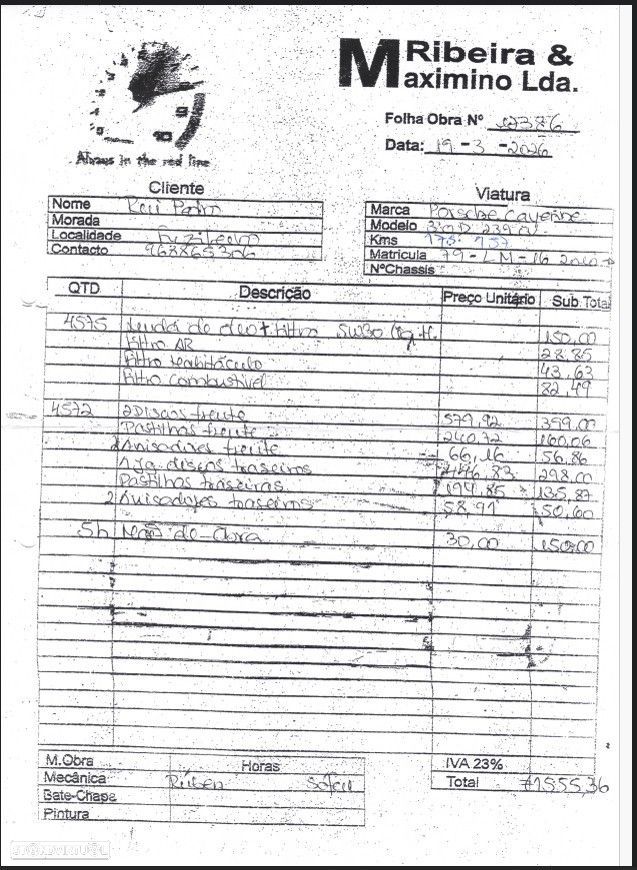 M Ribeira &
aximino Lda.
Folha Obra Nº
Data: 19-3-2026
Always in the red line
Cliente
Viatura
Nome Rui
Morada
Localidade
Contacto
Marca Porsche Cayenne
Modelo 3.0D
Kms
Matricula 79-LM-16
NºChassis
QTD Descrição Preço Unitário Sub Total
4575 de oleo + filtro 5W30 150,00
Filtro AR 28,85
Filtro 43,63
Filtro combustível 82,49
4572 2 Discos frente 579,92 399,00
Pastilhas frente 240,72 160,06
2 Avisadores frente 66,16 56,86
discos traseiros 446,83 298,00
Pastilhas traseiras 194,85 135,87
2 Avisadores traseiros 58,91 50,60
5h Mão-de-Obra 30,00 150,00
M.Obra Horas
Mecânica Rúben
Bate-Chapa
Pintura
IVA 23%
Total 1555,36